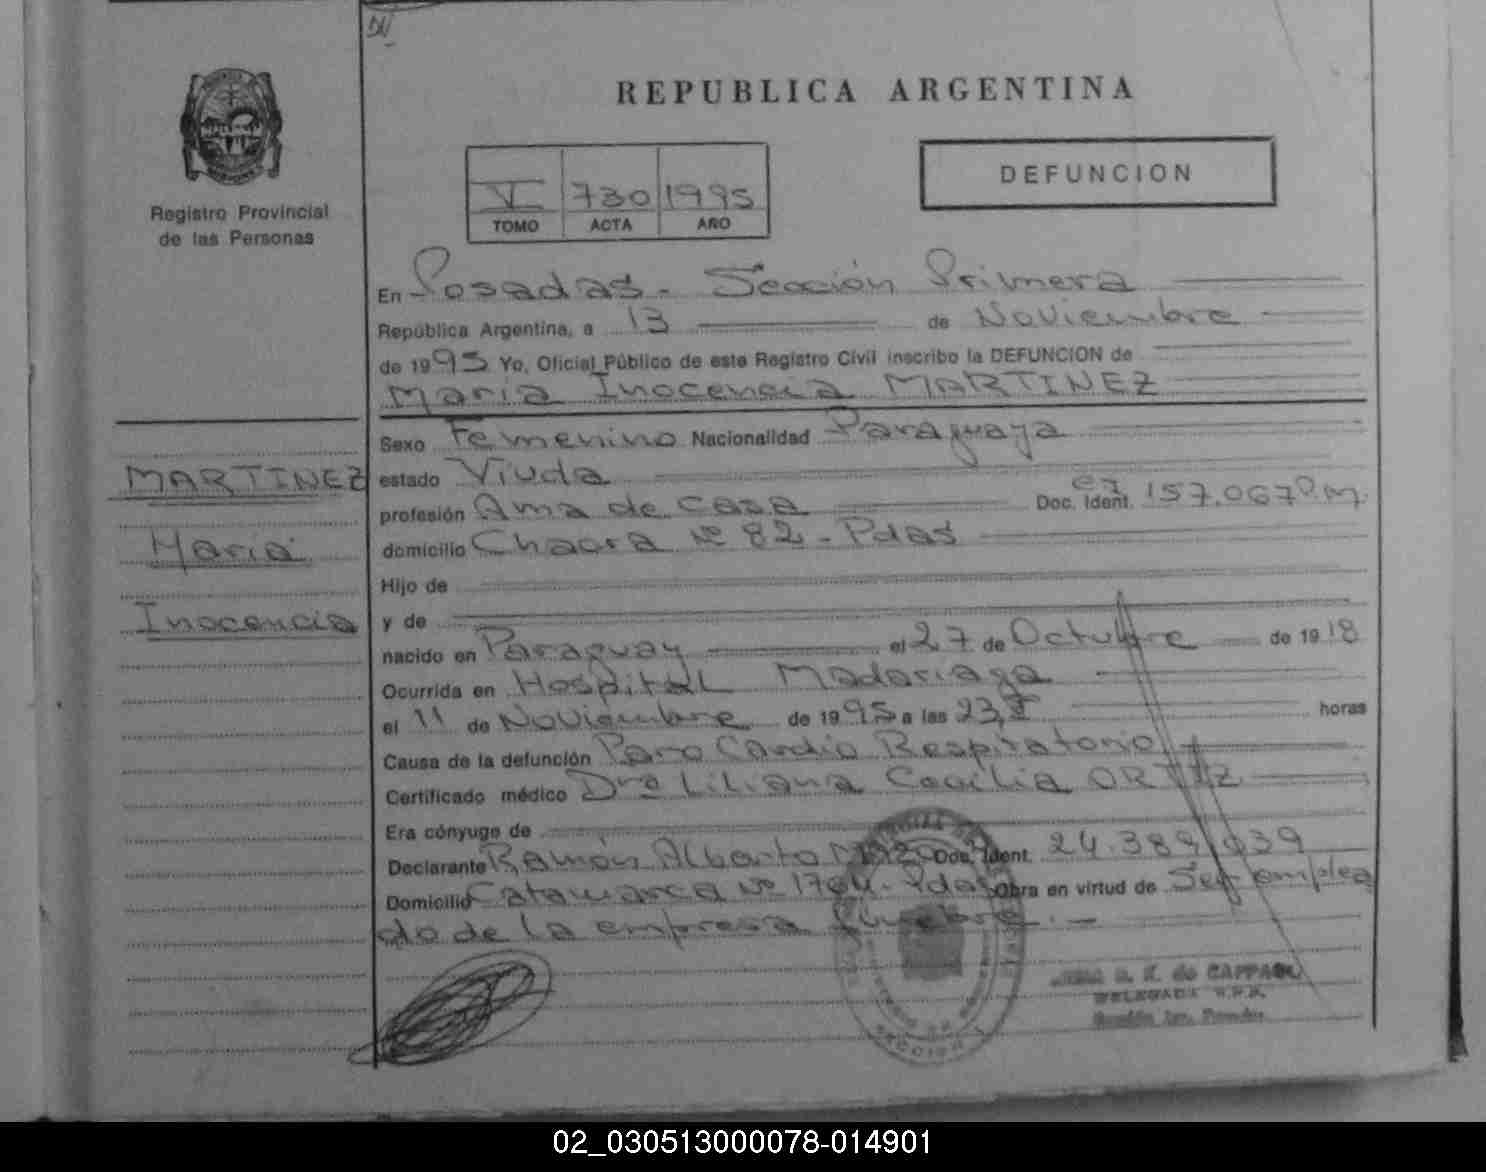 DN
REPUBLICA ARGENTINA
Registro Provincial
de las Personas
VI 730 1995
TOMO ACTA AÑO
DEFUNCION
En Posadas - Sección Primera
República Argentina, a 13 de Noviembre
de 1995 Yo, Oficial Público de este Registro Civil inscribo la DEFUNCION de
Maria Inocencia MARTINEZ
MARTINEZ
Maria
Inocencia
Sexo Femenino Nacionalidad Paraguaya
estado Viuda
profesión Ama de casa Doc. Ident. 157.067
domicilio Chacra Nº 82 - Pdas
Hijo de
y de
nacido en Paraguay el 27 de Octubre de 1918
Ocurrida en Hospital Madariaga
el 11 de Noviembre de 1995 a las 23, horas
Causa de la defunción Paro Cardio Respiratorio
Certificado médico Dra Liliana Cecilia ORTIZ
Era cónyuge de
Declarante Ramón Alberto Doc. Ident. 24.389.039
Domicilio Catamarca Nº 1704 - Pdas Obra en virtud de Ser emplea
do de la empresa fúnebre. -
de CAPPAOU
DELEGADA R.P.P.
02_030513000078-014901